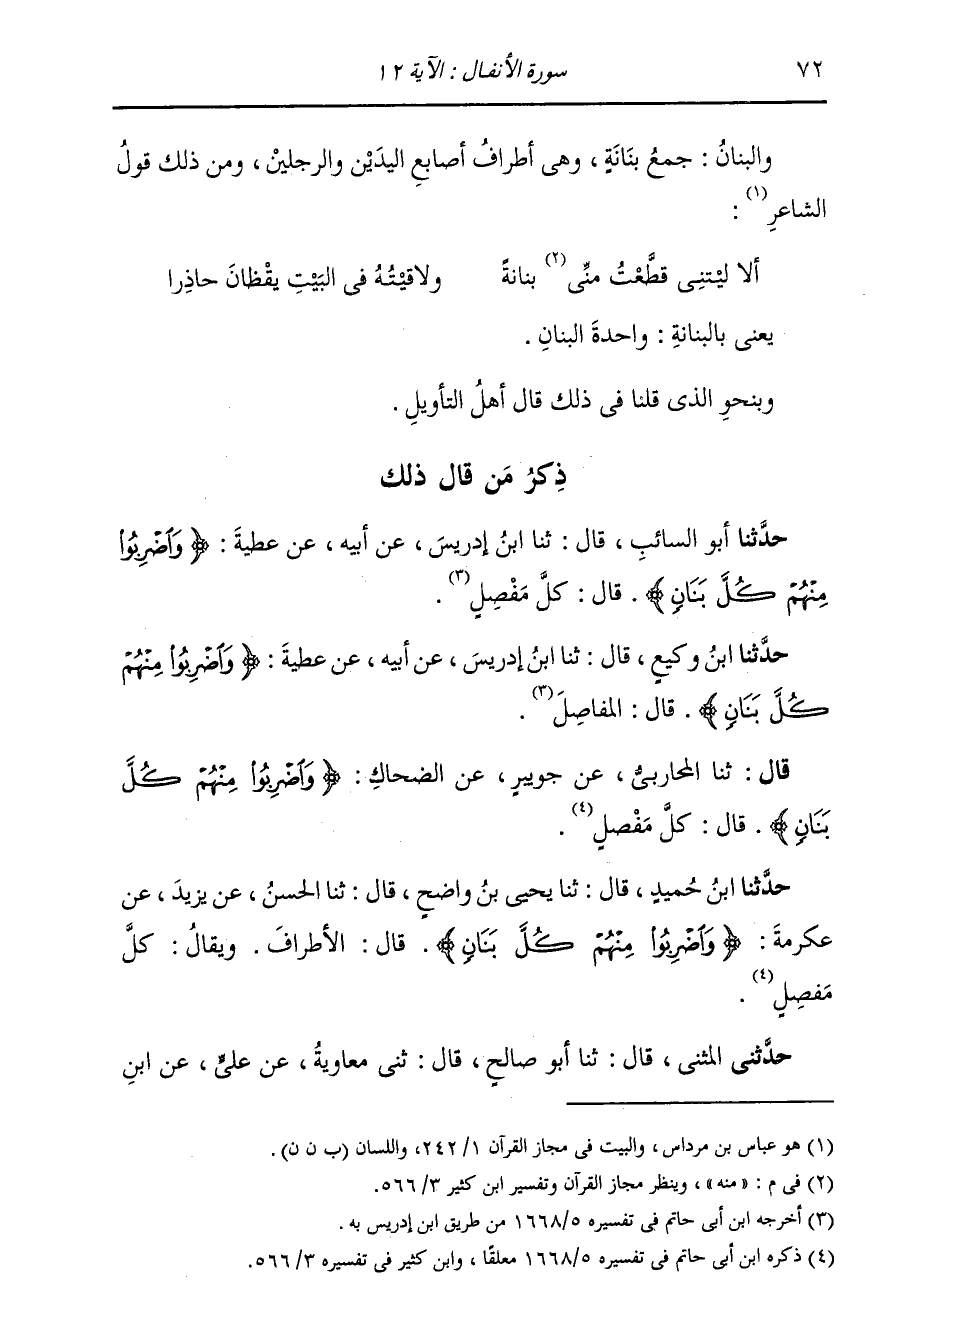 ٧٢ سورة الأنفال : الآية ١٢
والبنانُ : جمعُ بنَانَةٍ ، وهى أطرافُ أصابعِ اليدَيْن والرجلينْ ، ومن ذلك قولُ
الشاعرِ(١) :
ألا ليْتنِى قطَّعْتُ منِّى(٢) بنانةً ولاقيْتُهُ فى البَيْتِ يقْظانَ حاذِرا
يعنى بالبنانةِ : واحدةَ البنانِ .
وبنحوِ الذى قلنا فى ذلك قال أهلُ التأويلِ .
ذِكرُ مَن قال ذلك
حدَّثنا أبو السائبِ ، قال : ثنا ابنُ إدريسَ ، عن أبيه ، عن عطيةَ : ﴿ وَاَضْرِبُواْ
مِنْهُمْ كُلَّ بَنَانٍ ﴾ . قال : كلَّ مَفْصِلٍ(٣) .
حدَّثنا ابنُ وكيعٍ ، قال : ثنا ابنُ إدريسَ ، عن أبيه ، عن عطيةَ : ﴿ وَاَضْرِبُواْ مِنْهُمْ
كُلَّ بَنَانٍ ﴾ . قال : المفاصِلَ(٣) .
قال : ثنا المحاربىُّ ، عن جويبرٍ ، عن الضحاكِ : ﴿ وَاَضْرِبُواْ مِنْهُمْ كُلَّ
بَنَانٍ ﴾ . قال : كلَّ مَفْصلٍ(٤) .
حدَّثنا ابنُ حُميدٍ ، قال : ثنا يحيى بنُ واضحٍ ، قال : ثنا الحسنُ ، عن يزيدَ ، عن
عكرمةَ : ﴿ وَاَضْرِبُواْ مِنْهُمْ كُلَّ بَنَانٍ ﴾ . قال : الأطرافَ . ويقالُ : كلَّ
مَفصِلٍ(٤) .
حدَّثنى المثنى ، قال : ثنا أبو صالحٍ ، قال : ثنى معاويةُ ، عن علىٍّ ، عن ابنِ
(١) هو عباس بن مرداس ، والبيت فى مجاز القرآن ١/ ٢٤٢، واللسان (ب ن ن) .
(٢) فى م : « منه » ، وينظر مجاز القرآن وتفسير ابن كثير ٣/ ٥٦٦.
(٣) أخرجه ابن أبى حاتم فى تفسيره ٥/ ١٦٦٨ من طريق ابن إدريس به .
(٤) ذكره ابن أبى حاتم فى تفسيره ٥/ ١٦٦٨ معلقا ، وابن كثير فى تفسيره ٣/ ٥٦٦.